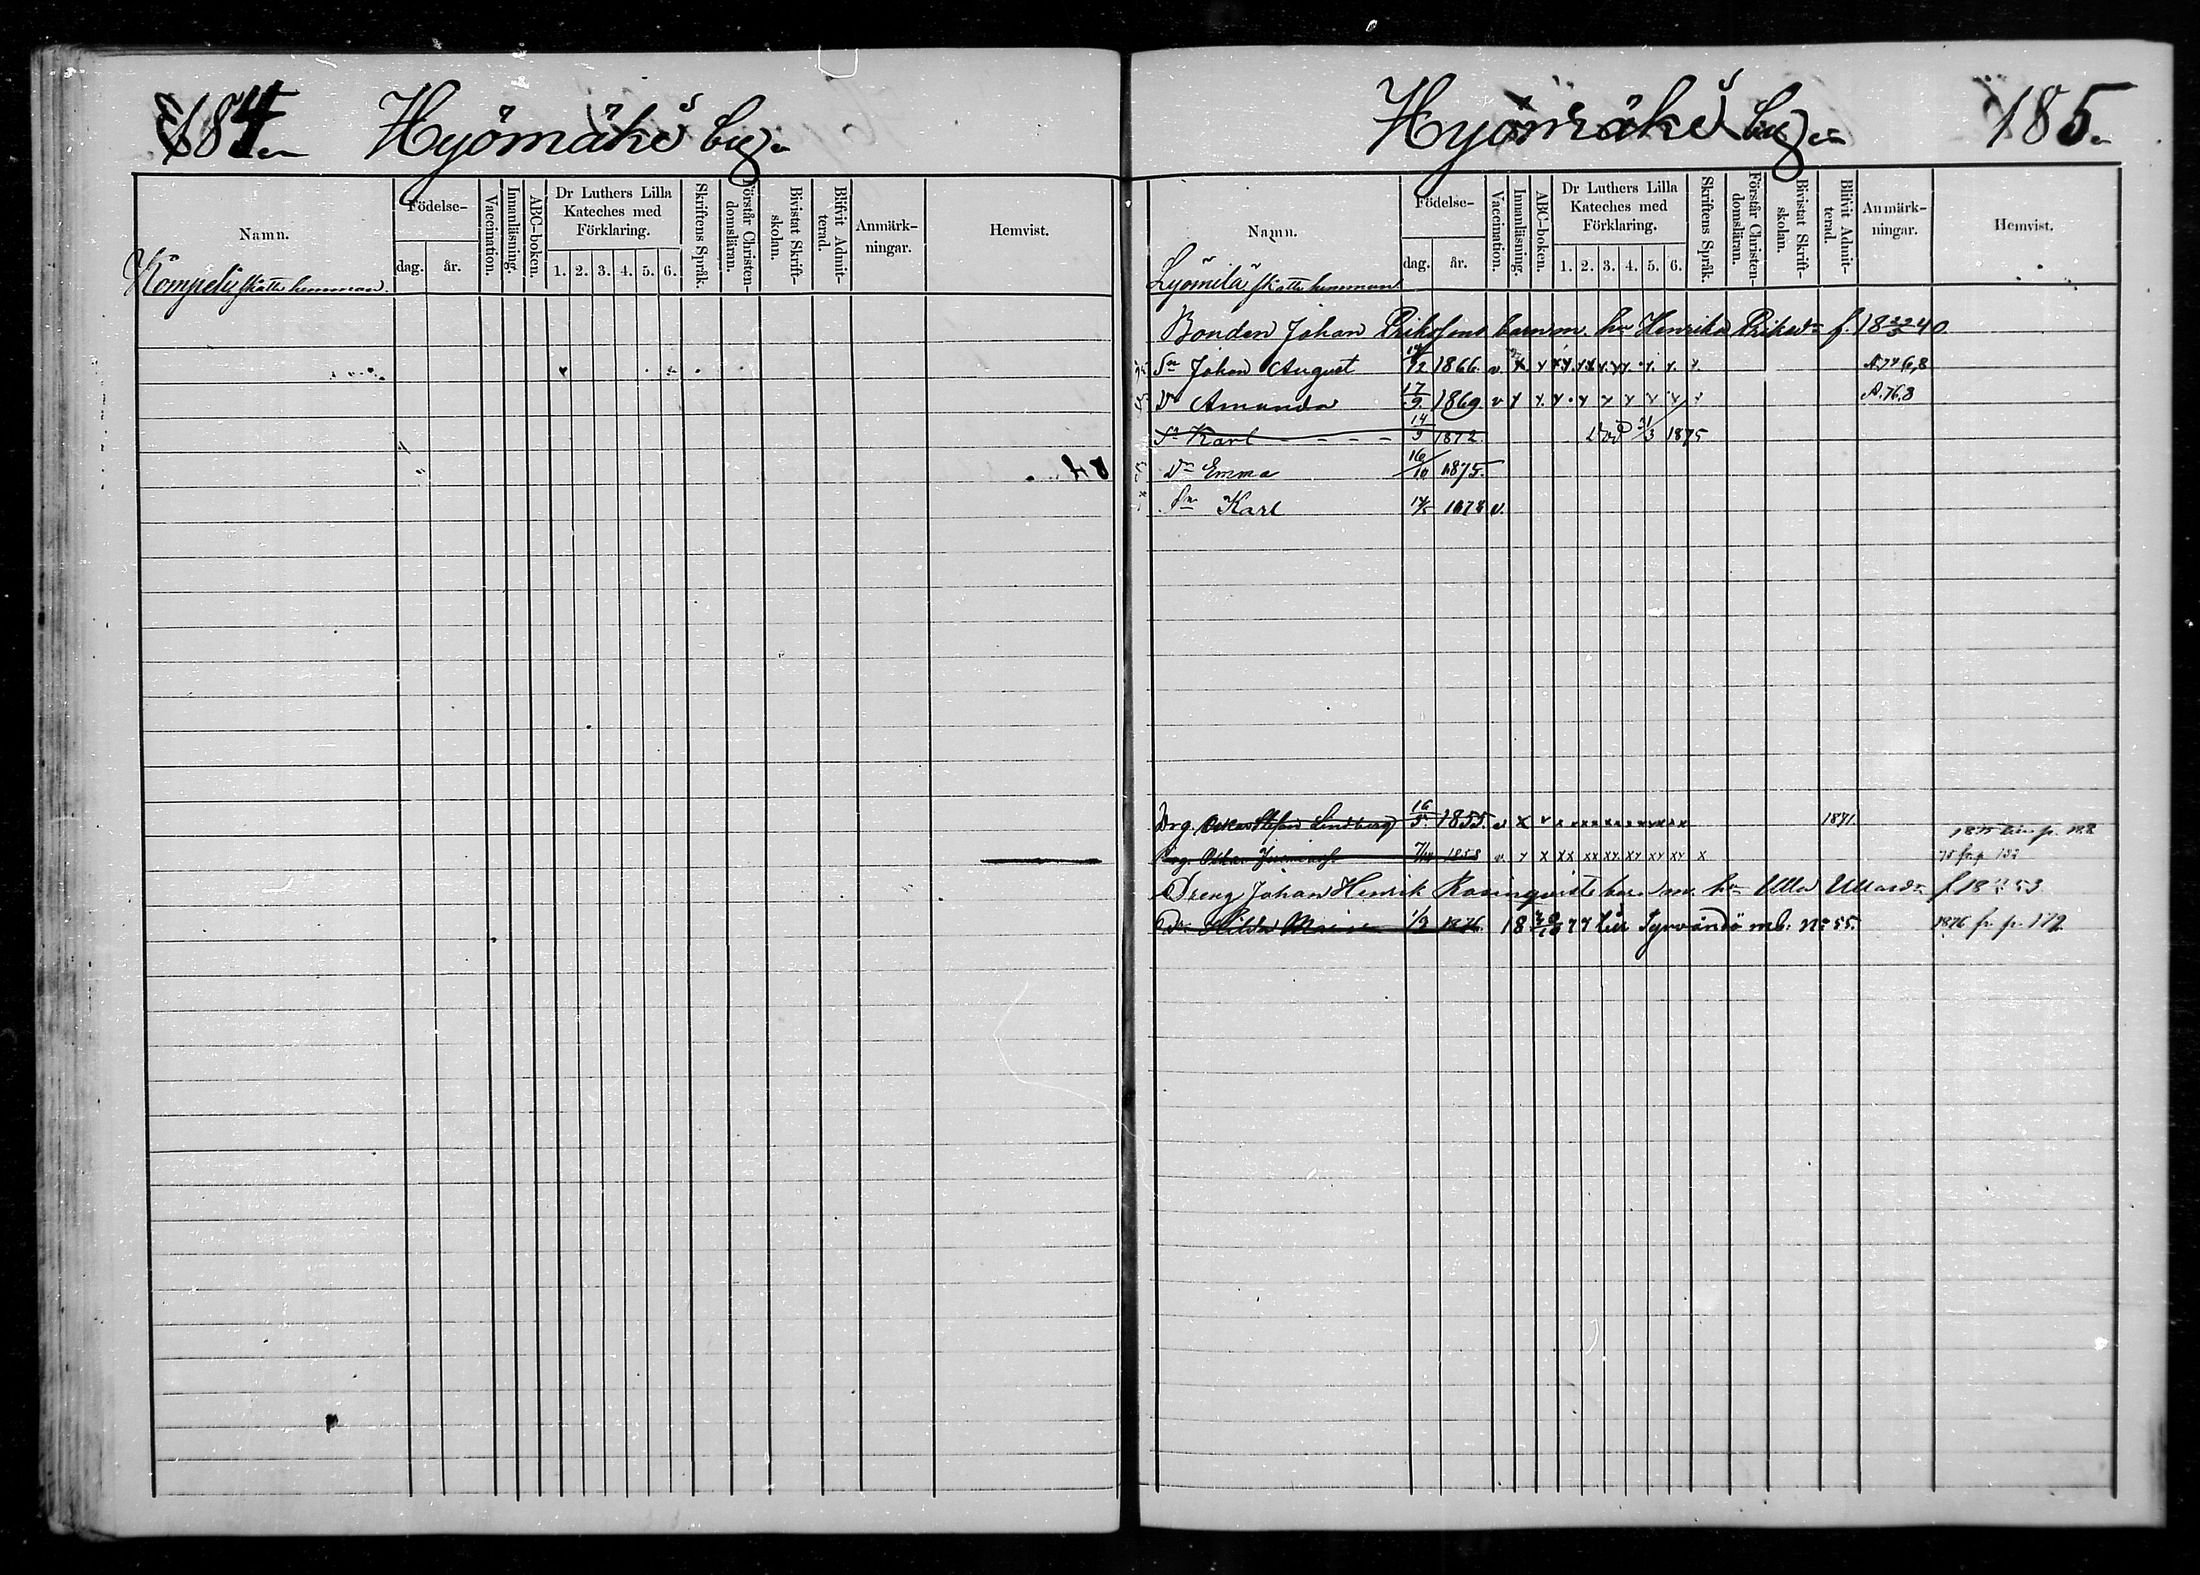 184. Hyömäki by.
Namn. Födelse- dag. år. Vaccination. Innanläsning. ABC-boken. Dr Luthers Lilla Kateches med Förklaring. 1. 2. 3. 4. 5. 6. Skriftens Språk. Förstår Christendomsläran. Bivistat Skriftskolan. Blifvit Admitterad. Anmärkningar. Hemvist.
Kömpeli Skatte hemman.
Hyömäki by. 185.
Namn. Födelse- dag. år. Vaccination. Innanläsning. ABC-boken. Dr Luthers Lilla Kateches med Förklaring. 1. 2. 3. 4. 5. 6. Skriftens Språk. Förstår Christendomsläran. Bivistat Skriftskolan. Blifvit Admitterad. Anmärkningar. Hemvist.
Lyömilä Skatte hemman
Bonden Johan Erikssons barn m. hu Henrika Eriksdr f. 18 22/5 40
Sn Johan August 1866. v.
Dr Amanda 17/9. 1869 v A.76,8
Sn Karl 14/9 1872 Död 1875
Dr Emma 16/10 1875.
Sn Karl 1878 v.
Drg. Oskar Stefan Lindberg 1855. v x 1871.
Drg. Oskar 1858 v. x x
Dreng Johan Henrik Rosinqvists barn m. hu Ulla
Dr Hilda Maria 1/9 1876. 77 till Tyrvändö mb. No 55. 1876 fr. p. 179.